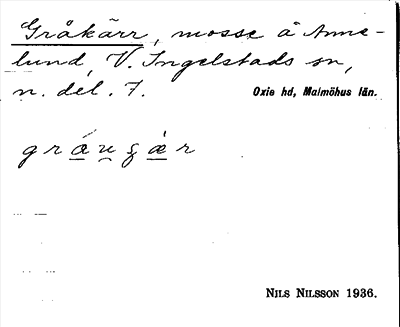 Gråkärr, mosse å Anne-
lund, V. Ingelstads sn,
n. del. 7.
Oxie hd, Malmöhus län.
NILS NILSSON 1936.